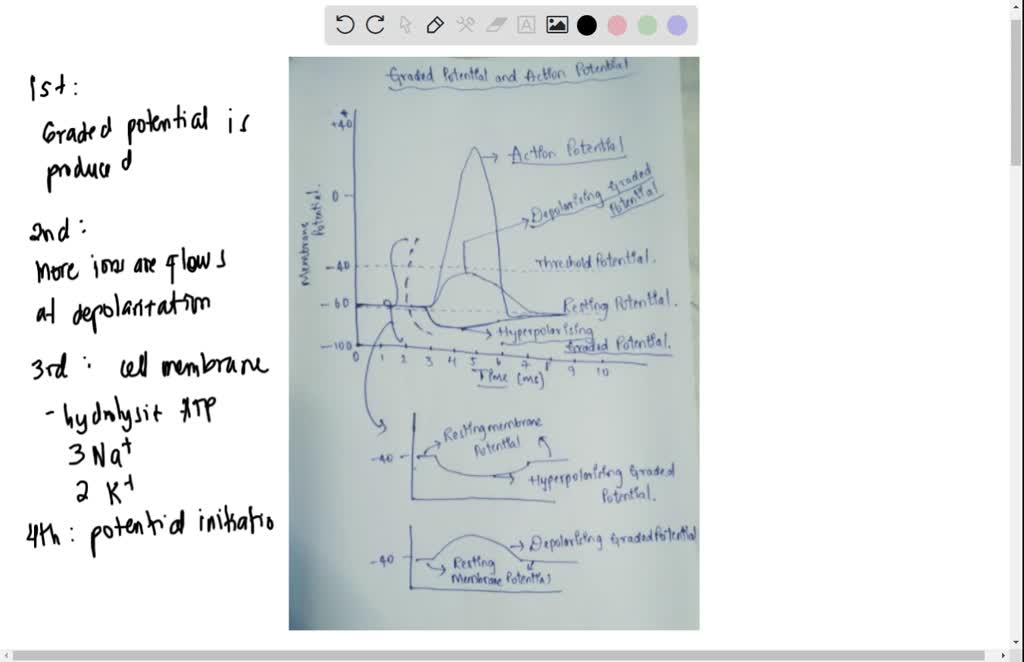 1st:
Graded potential is
produced
2nd:
More ions are flows
at depolarization
3rd: cell membrane
- hydrolysit ATP
3 Na+
2 K+
4th: potential initiatio
Graded Potential and Action Potential
+40
Action Potential
0
Depolarising Graded
Potential
Membrane
Potential.
-40
Threshold Potential.
-60
Resting Potential.
Hyperpolarising
Graded Potential.
-100
0 1 2 3 4 5 6 7 8 9 10
Time (ms)
Resting membrane
Potential
-40
Hyperpolarising Graded
Potential.
Depolarising Graded Potential
-40
Resting
Membrane Potential